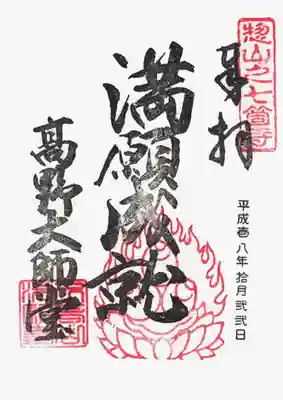 惣山之七箇寺
奉拝
平成壱八年 拾月 弐弐日
満願成就
高野大師堂